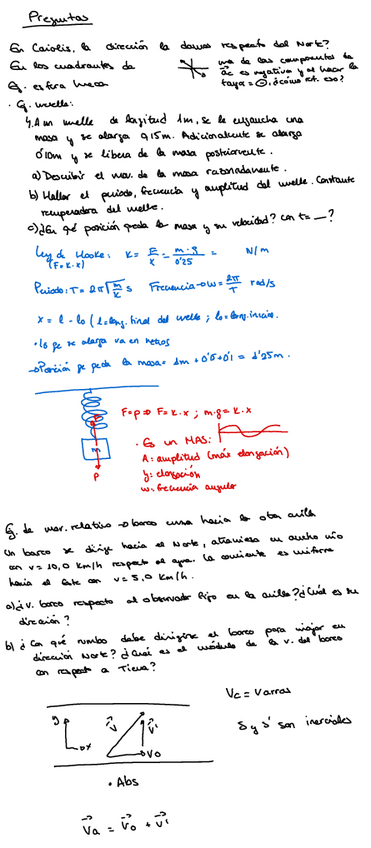 Preguntas
En Coriolis, la dirección la damos respecto del Norte?
En los cuadrantes de una de las componentes de
ac es negativa y al hacer la
taga = ⊖, ¿cómo ref. eso?
Ej. esfera hueca
· Ej. muelle:
A un muelle de longitud 1m, se le engancha una
masa y se alarga 0,15m. Adicionalmente se alarga
0'10m y se libera de la masa posteriormente.
a) Describir el mov. de la masa razonadamente.
b) Hallar el periodo, frecuencia y amplitud del muelle. Constante
recuperadora del muelle.
c) ¿En qué posición queda la masa y su velocidad? con t= __?
Ley de Hooke: K = F/x = m·g/0'25 = N/m
(F=K·x)
Periodo: T = 2π√m/K s Frecuencia → ω = 2π/T rad/s
x = l - lo (l = long. final del muelle ; lo = long. inicio.
· lo que se alarga va en metros
→ Posición que queda la masa = 1m + 0'15 + 0'1 = 1'25m.
F=p ⇒ F = K·x ; m·g = K·x
· Es un MAS:
A: amplitud (más elongación)
y: elongación
ω: frecuencia angular
m
P
Ej. de mov. relativo → barco cruza hacia la otra orilla
Un barco se dirige hacia el Norte, atraviesa un ancho río
con v = 10,0 km/h respecto al agua. La corriente es uniforme
hacia el Este con v = 5,0 km/h.
a) ¿v. barco respecto al observador fijo en la orilla? ¿Cuál es su
dirección?
b) ¿Con qué rumbo debe dirigirse el barco para viajar en
dirección Norte? ¿Cuál es el módulo de la v. del barco
con respecto a Tierra?
Vc = Varras
y
x
v
v'
Vo
S y S' son inerciales
· Abs
Va = Vo + V'